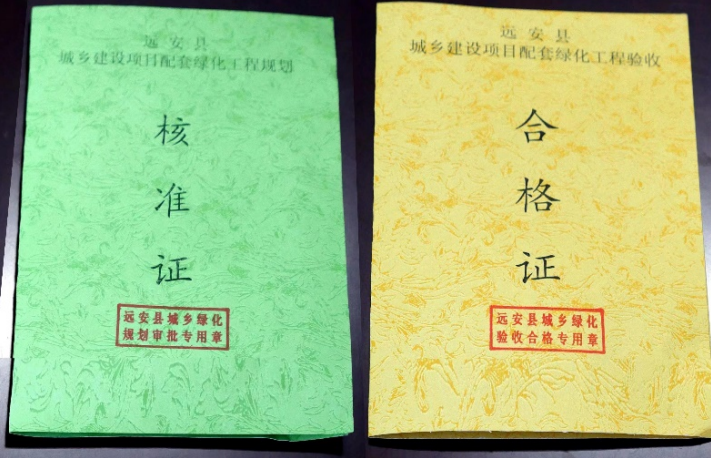 远安县
城乡建设项目配套绿化工程规划
核
准
证
远安县城乡绿化
规划审批专用章
远安县
城乡建设项目配套绿化工程验收
合
格
证
远安县城乡绿化
验收合格专用章